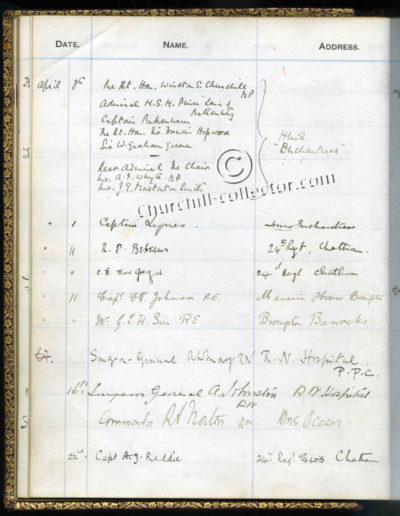 DATE. NAME. ADDRESS.
April 8th The Rt. Hon. Winston S. Churchill MP
Admiral H.S.H. Prince Louis of Battenberg
Captain Pakenham
The Rt. Hon. Sir Francis Hopwood
Sir W. Graham Greene
H.M.S. "Enchantress"
Rear Admiral De Chair
Mr. A.F. Whyte MP
Mr. J.E. Masterton Smith
© Churchill-collector.com
" Captain Enchantress
" 11 R. P. 24th Regt, Chatham.
" " 24th Regt Chatham
" 11 Capt. Johnson R.E. House Brompton
" " Mr. G.E.H. Sim R.E. Brompton Barracks
Surgeon-General RN R.N. Hospital
P.P.C.
16th Surgeon General A. Johnston RN Hospital
RN
Commander Norton RN HMS Ocean.
22nd Capt A.J. Reddie 24th Regt SWB Chatham